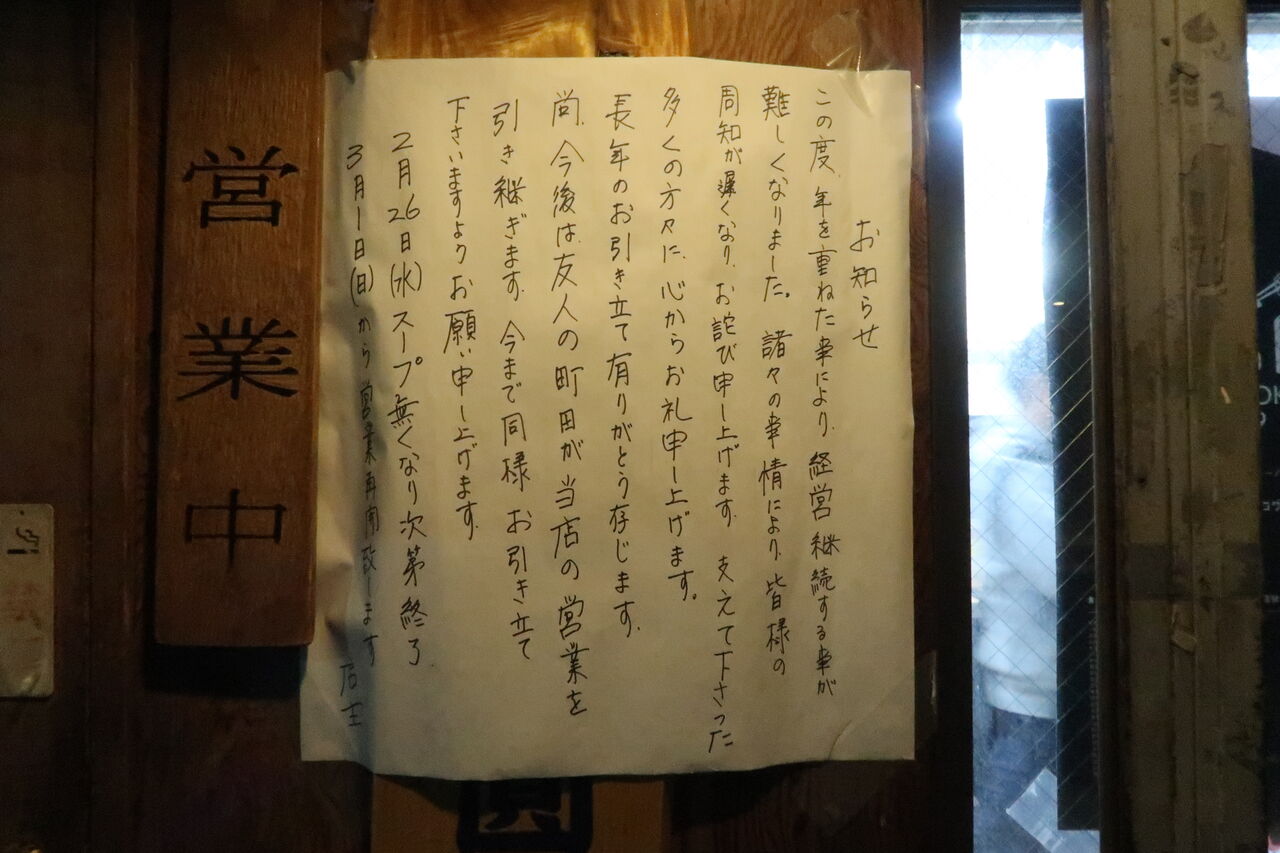 お知らせ
この度、年を重ねた事により、経営継続する事が
難しくなりました。諸々の事情により、皆様の
周知が遅くなり、お詫び申し上げます。支えて下さった
多くの方々に、心からお礼申し上げます。
長年のお引き立て有りがとう存じます。
尚、今後は、友人の町田が当店の営業を
引き継ぎます。今まで同様 お引き立て
下さいますよう お願い申し上げます。
2月26日(水)スープ無くなり次第終了
3月1日(日)から営業再開致します 店主
営業中